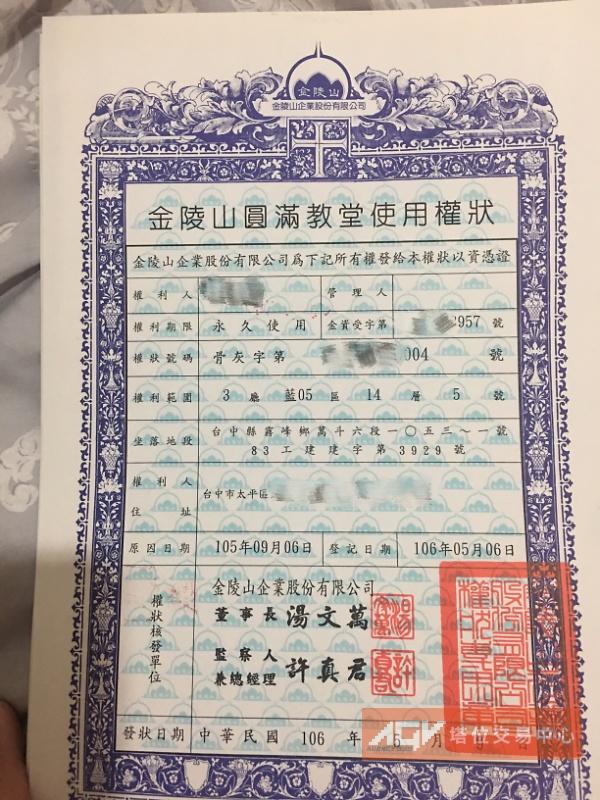 金陵山
金陵山企業股份有限公司
金陵山圓滿教堂使用權狀
金陵山企業股份有限公司為下記所有權發給本權狀以資憑證
權利人 管理人
權利期限 永久使用 金寶受字第 957 號
權狀號碼 骨灰字第 004 號
權利範圍 3 廳 藍05 區 14 層 5 號
坐落地段 台中縣霧峰鄉萬斗六段一〇五三~一號
83工建建字第3929號
權利人
住址 台中市太平區
原因日期 105年09月06日 登記日期 106年05月06日
權狀核發單位
金陵山企業股份有限公司
董事長 湯文萬
監察人
兼總經理 許真君
發狀日期 中華民國 106 年 月
AGW 塔位交易中心